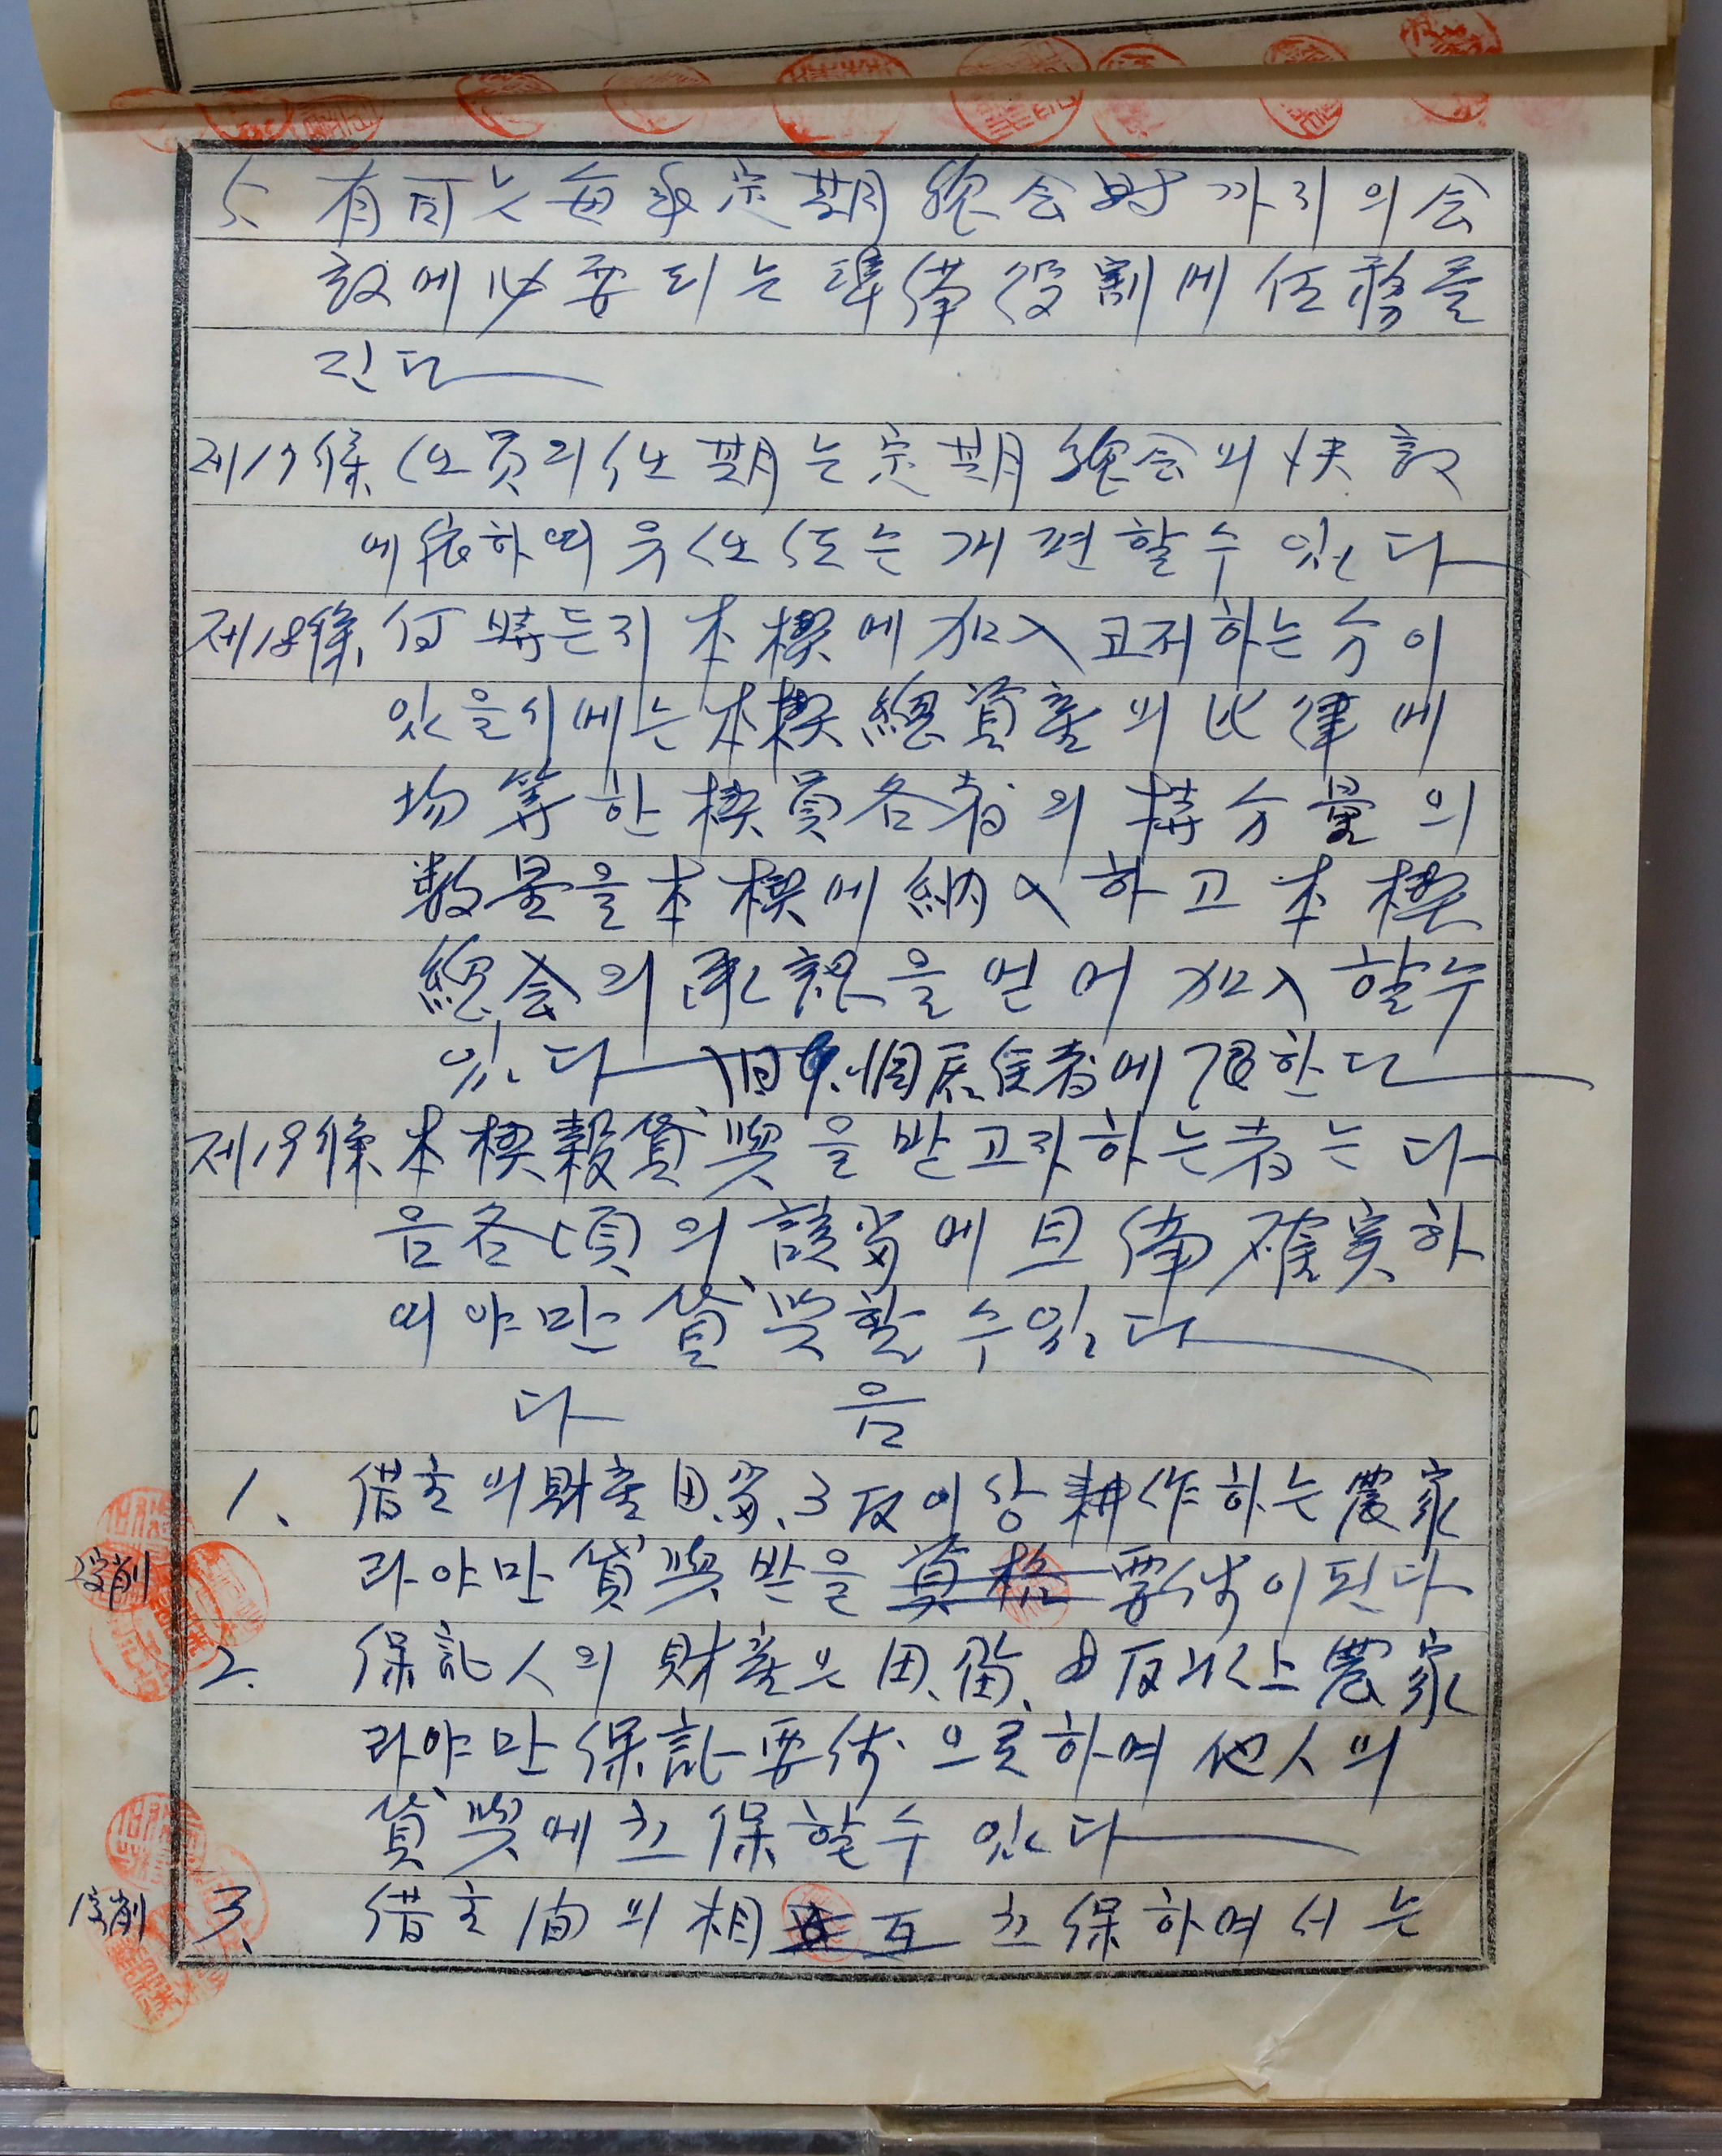 5. 有司는 每年 定期 總会時 까지의 会
議에 必要되는 準備役割에 任務를
진다
제17條 任員의 任期는 定期總会의 決議
에 依하여 유任 또는 개편할수 있다
제18條 何時든지 本楔에 加入코저하는 分이
있을시에는 本楔總資産의 比律에
均等한 楔員各者의 持分量의
数量을 本楔에 納入하고 本楔
總会의 承認을 얻어 加入할수
있다 洞居住者에 限한다
제19條 本楔穀貸與을 받고자하는者는 다
음各項의 該当에 且備確実하
여야만 貸與할 수있다
다 음
1. 借主의財産 田.畓.3反이상 耕作하는 農家
라야만 貸與받을 資格 要件이 된다
2. 保証人의 財産은 田.畓. 反以上農家
라야만 保証要件으로하며 他人의
貸與에 立保할수 있다
3. 借主間의 相互 立保하며서는